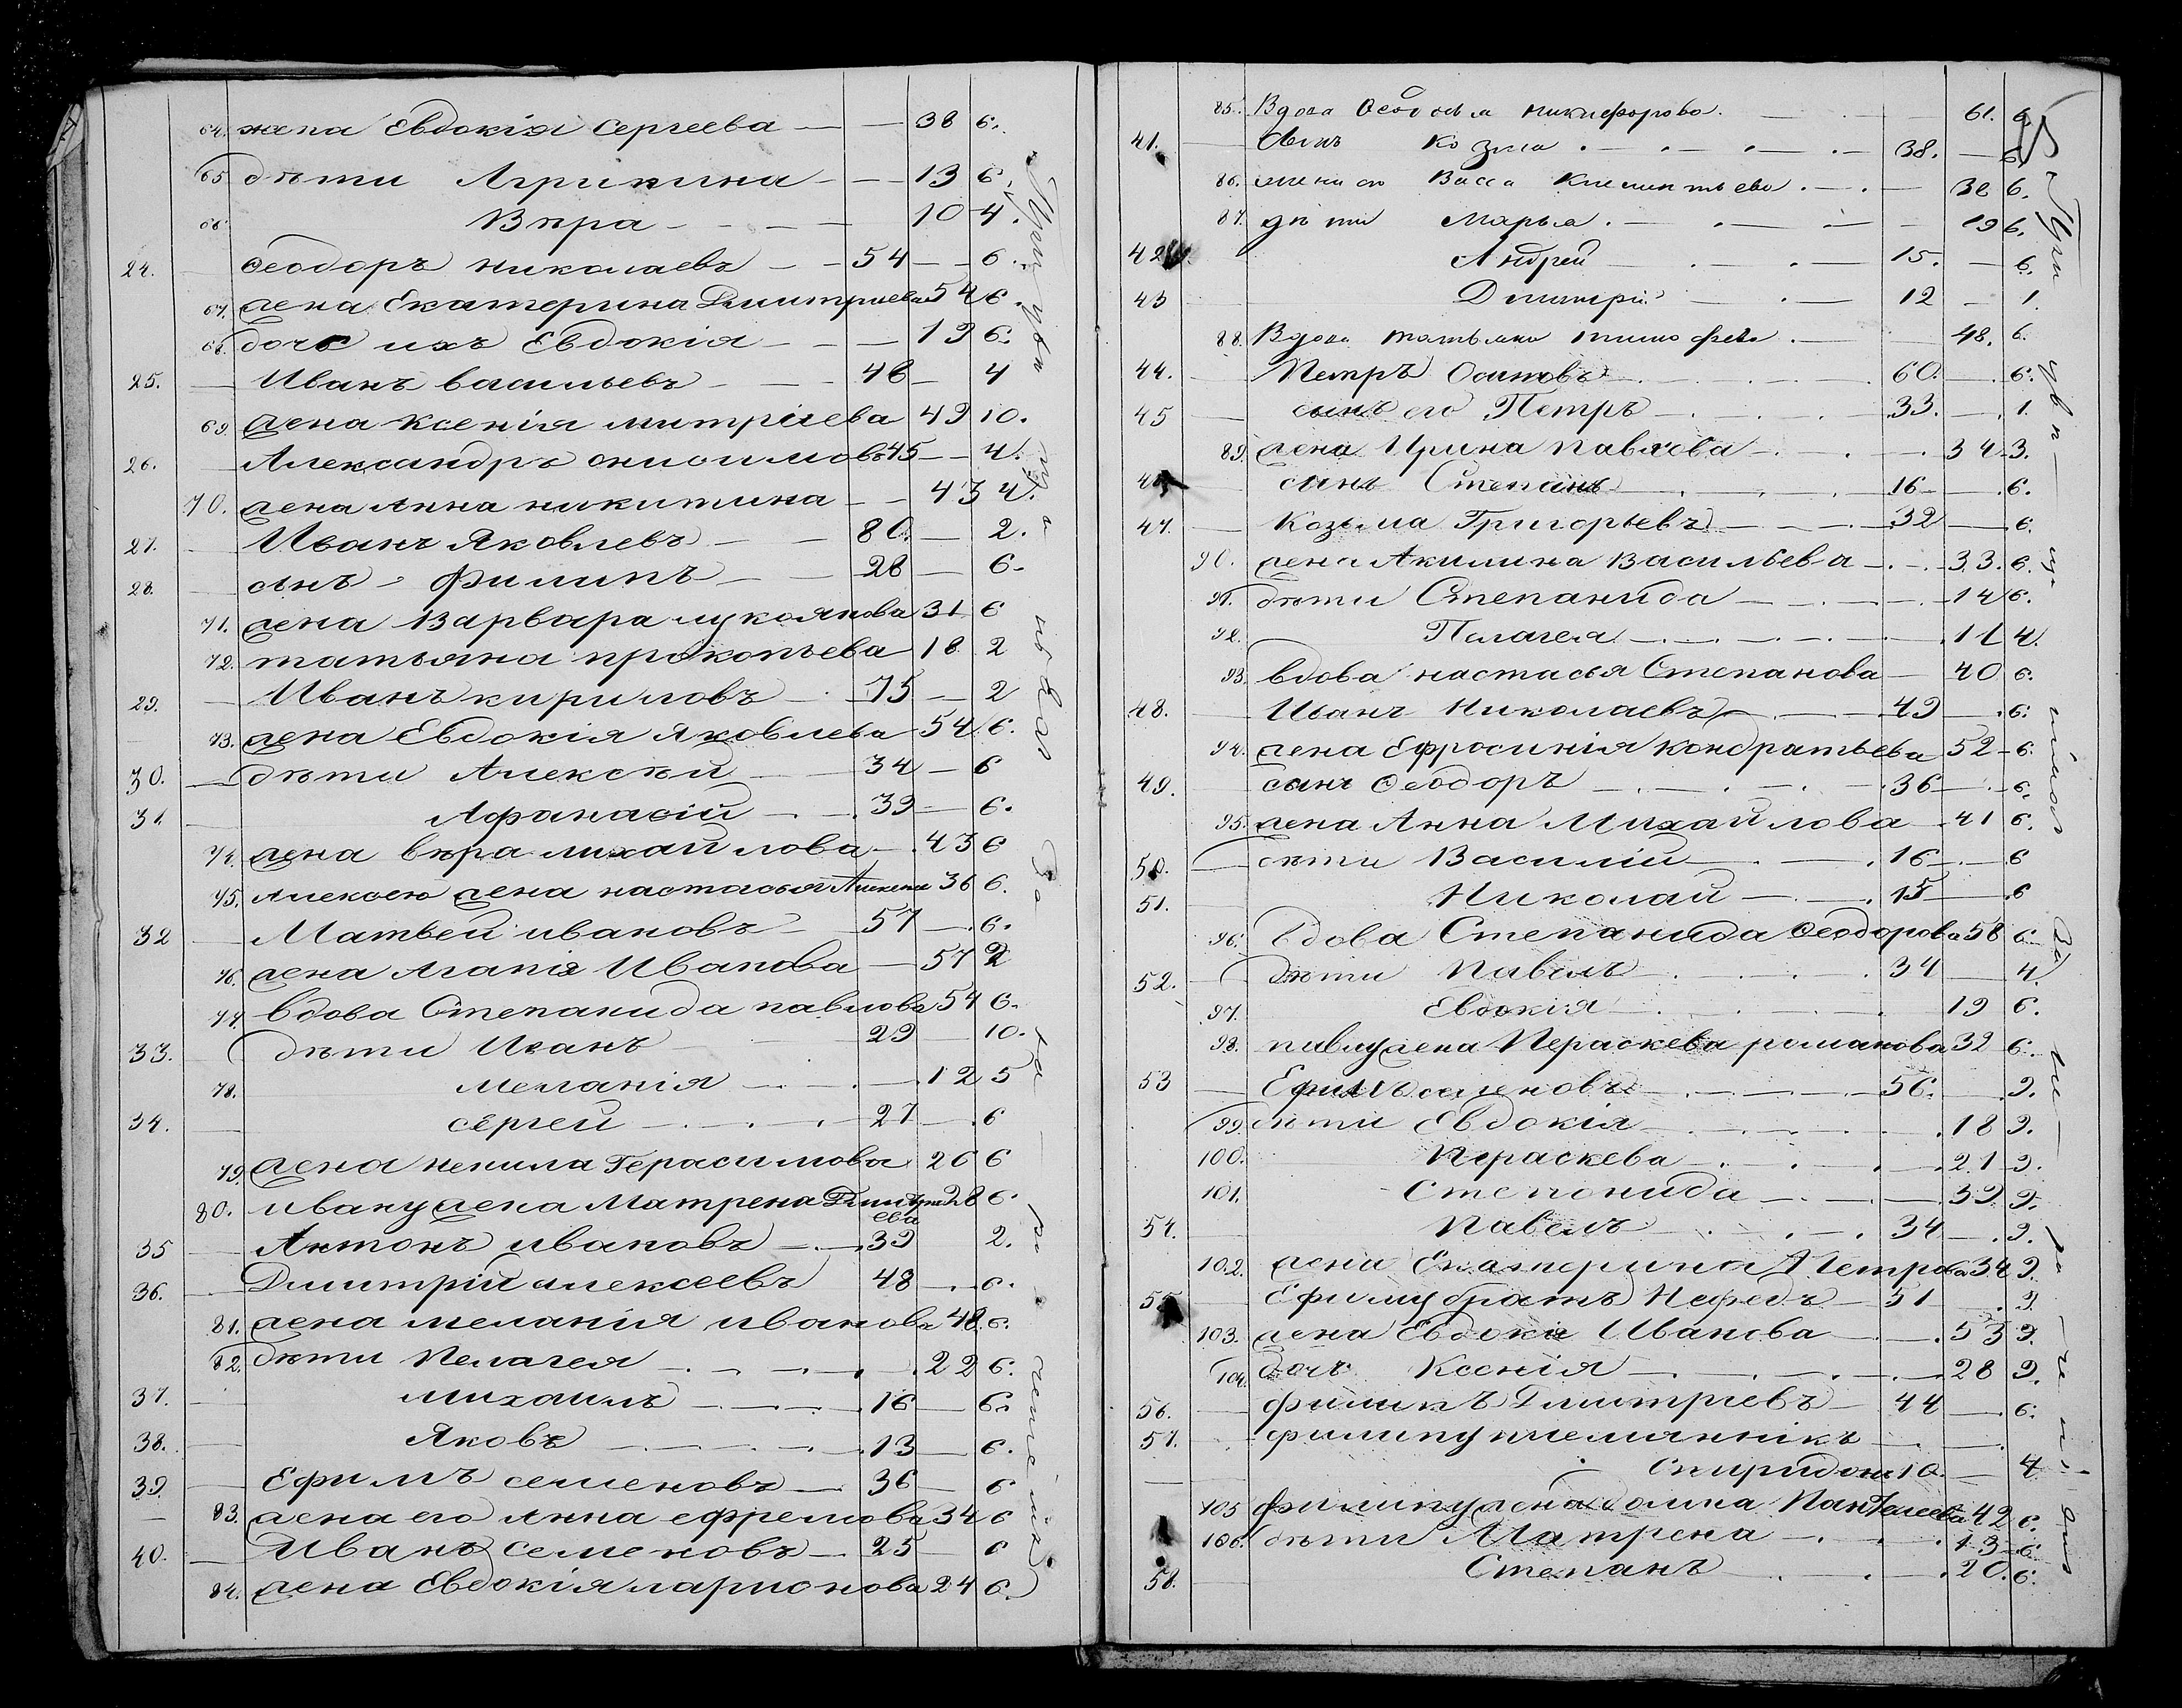 64. жена Евдокія Сергеева — — 38 6.
65 дѣти Агрипина — — 13 6.
66. Вѣра — — — — 10 4.
24. — Ѳеодоръ николаевъ — — 54 — — 6.
67. жена Екатерина Дмитриева 54 6.
68. дочь ихъ Евдокія — — — 19 6.
25. — Иванъ васильевъ — — — 48 — 4
69. жена Ксенія митріева 49 10.
26. — Александръ онисимовъ 45 — — 4.
70. жена Анна никитина — — 43 4.
27. — Иванъ Яковлевъ — — 80. — 2.
28. — сынъ — Филипъ — — 28 — 6.
71. жена Варвара лукоянова 31 6
72. татьяна прокопьева 18 2
29. — Иванъ кириловъ — 75 — 2
73. жена Евдокія Яковлева 54 6.
30. — дѣти Алексѣй — — 34 — 6
31. — Афанасій — — 39 — 6.
74. жена вѣра михайлова — 43 6
75. Алексею жена настасья 36 6.
32 — Матвей ивановъ — 57 — 6.
76. жена Агапія Иванова — 57 2
77. вдова Степанида павлова 54 6.
33. — дѣти Иванъ — 29 — 10.
78. меланія — . — . — 12 5
34. — сергей — . — . — 27 — 6
79. жена ненила Герасимова 26 6
80. ивану жена Матрена Дмитриева 28 6
35 — Антонъ ивановъ — . — 39 2.
36. — Дмитрій алексеевъ 48 — . 6.
81. жена меланія иванова 48 6.
82. дѣти Пелагея — . — . — . 22 6.
37. — михаилъ — . — . 16 — 6.
38. — Яковъ — . — . — . 13 — 6.
39. — Ефимъ семеновъ — 36 — 6
83. жена его Анна ефремова 34 6
40. — Иванъ семеновъ — 25 — 6
84. жена Евдокія ларионова 24 6.
При церк
85. Вдова Ѳеодосья никифорова. — 61. 6.
41. — Сынъ Козма . — . — . — 38. — 6.
86. жена его Васса Клементьева . — . — 38 6.
87. дѣти Марья . — . — . — 19 6.
42. Андрей — . — 15. — 6.
43 — Дмитрій — . — 12 — 1.
88. Вдова татьяна тимофева . — 48. 6.
44. — Петръ Осиповъ . — . — 60. — 6.
45 — сынъ его Петръ — . — 33. — 1.
89. жена Ирина павлова — . — 34 3.
46. — сынъ Степанъ — . — 16 — 6.
47. — Козьма Григорьевъ — . — 32 — 6.
90. жена Акилина Васильева — . — 33. 6.
91. дѣти Степанида — . — . — 14 6.
92. Пелагея — . — . — 11 4.
93. вдова настасья Степанова — 40 6.
48. — Иванъ Николаевъ — . — 49 — 6.
94. жена Ефросинія кондратьева 52 6.
49. сынъ Ѳеодоръ — . — . — 36 — 6.
95. жена Анна Михайлова — 41 6.
50. — дѣти Василій — . — 16 — . 6
51. — Николай — . — 15 — 6
96. вдова Степанида Ѳеодорова 58 6
52. — дѣти Павелъ — . — . 34 — 4.
97. Евдокія — . — . 19 6.
98. павлу жена Пераскева романова 32 6.
53 — Ефимъ семеновъ — . — 56. — 9.
99. дѣти Евдокія — . — . — 18 9.
100. Пераскева — . — . 21 9.
101. Степонида — . — 39 9.
54. — Павелъ — . — . 34 — 9.
102. жена Екатерина Петрова 34 9.
55 — Ефиму братъ Нефедъ — 51 — . 9.
103. жена Евдокія Иванова — . 53 9.
104. дочь Ксенія — . — . — 28 9.
56. — филипъ Дмитриевъ — 44 — . 6.
57. — филипу племянникъ — . —
Спиридонъ 10 — 4.
105 филипу жена домна Пантелеева 42 6.
106. дѣти Матрена — . 13 6.
58. — Степанъ — . — 20. 6.